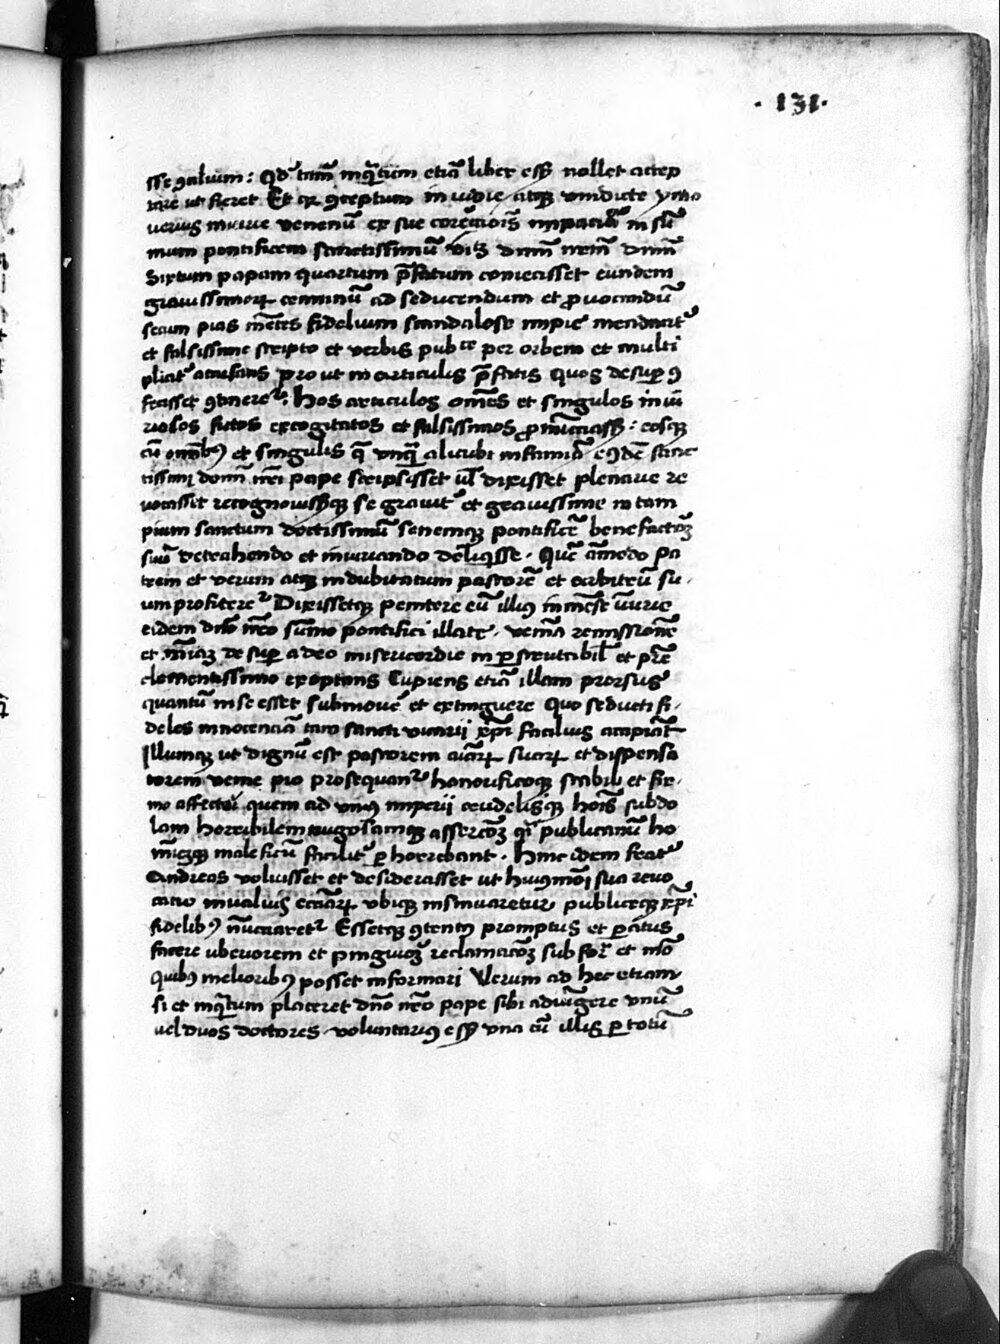 ·131·
sse ꝯalium: Qd' tam̄ inq̄ntum etiā liber esß nollet accep
tare ut fieret Et ex ꝯceptum in iudie atqꝫ vindicte ymo
verius nimie venenū ex sue
mum pontificem sanctissimū dn̄m nr̄m dn̄m
Sixtum papam quartum p̄fatum coniecisset eundem
grauissimoꝝ criminū ad seducendum et ꝓuocandū
secum pias mētes fidelium scandalose impie mendacit'
et falsissime scripto et verbis pubce per orbem et multi
plicit' accusans pro ut in articulis p̄fatis quos desuꝑ ꝯ
fecisset ꝯtinere': Hos articulos om̄es et singulos iniu
riosos fictos excogitatos et falsissimos ꝓnūciasß: eosqꝫ
cū omībꝰ et singulis q̄ vnq̄ alicubi infamiā eiꝰdē sanc
tissimi domī nr̄i pape scripsisset ul' dixisset plenarie re
uocasset recognouissꝫqꝫ se grauit' et grauissime in tam
pium sanctum doctissimū senemqꝫ pontificē benefactoꝝ
suū detrahendo et iniuriando deliq̄sse. Quē āmodo pa
trem et verum atqꝫ indubitatum pastorē et arbitrū su-
um profitere' Dixissetqꝫ penitere eū illiꝰ inmēse iniurie
eidem dn̄o nr̄o sūmo pontifici illate. veniā remissionē
et desuꝑ a deo misericordie inꝑscrutabil' et pr̄e
clementissimo exoptans Cupiens etiā illam prorsus
quantū in se esset submoue' et extinguere Quo seducti fi-
deles innocenciā tam sancti vicarii xp̄i facilius accipiāt
Illumqꝫ ut dignū est pastorem aīaꝝ suaꝝ et dispensa
torem vere pio prosequan' honorificoqꝫ stabili et fir-
mo affectu quem ad vnꝰ imperii crudelisqꝫ hoīs subdo
lam horribilem nugosamqꝫ assercōꝫ publicanū ho
maleficū facilit' ꝑhorrebant. Hinc idem frat'
Andreas voluisset et desiderasset ut huiꝰmōi sua reuo
catio in valuis eccīaꝝ vbiqꝫ insinuaretur publiceqꝫ xp̄i
fidelibꝰ nūciaret' Essetqꝫ ꝯtentꝰ promptus et ꝑatus
facere uberiorem et pinguioꝫ reclamacōꝫ sub for' et mō
quibꝰ melioribꝰ posset informari Verum ad hec etiam
si et inq̄ntum placeret dn̄o nr̄o pape sibi adiūgere vnū
uel duos doctores voluntariꝰ esß vna cū illis ꝑ totū